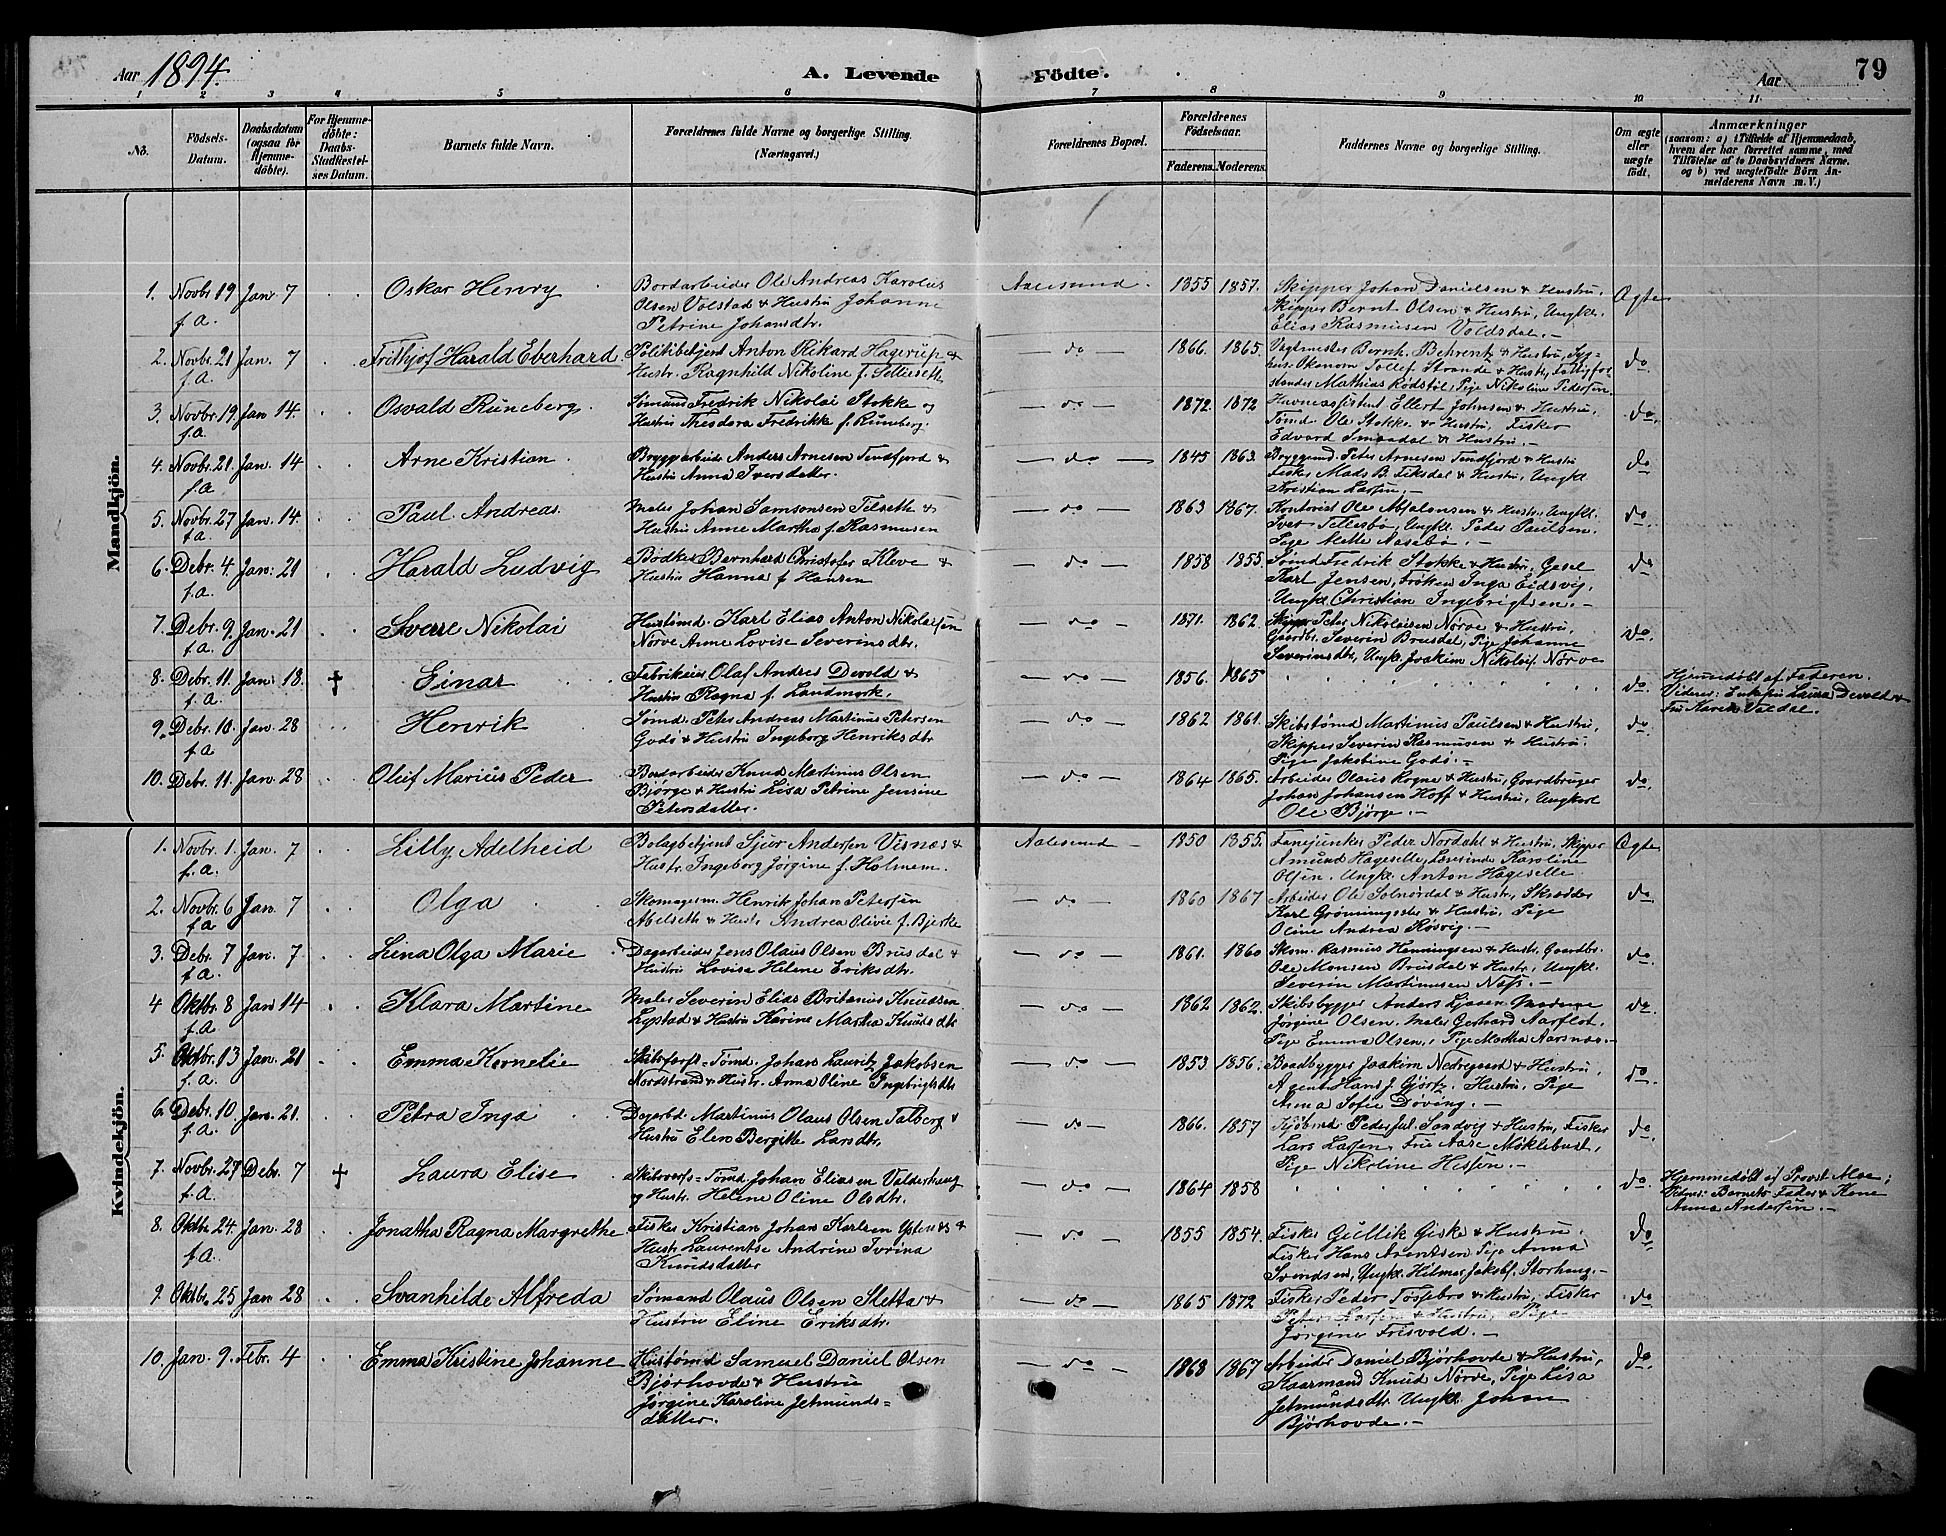 Aar 1894. A. Levende Födte. Aar 79
1 2 3 4 5 6 7 8 9 10 11
No.
Födsels-Datum.
Daabsdatum (ogsaa for Hjemmedöbte).
For Hjemmedöbte: Daabs-Stadfæstelses Datum.
Barnets fulde Navn.
Forældrenes fulde Navne og borgerlige Stilling. (Næringsvei.)
Forældrenes Bopæl.
Forældrenes Födselsaar.
Faderens. Moderens.
Faddernes Navne og borgerlige Stilling.
Om ægte eller uægte födt.
Anmærkninger
(saasom: a) i Tilfælde af Hjemmedaab, hvem der har forrettet samme, med Tilföielse af to Daabsvidners Navne. og b) ved uægtefödte Börn Anmelderens Navn m. V.)
Mandkjön.
1. Novbr 19 Jan 7 Oskar Henry Bordarbeider Ole Andreas Karolus Aalesund. 1855 1857. Skipper Johan Danielsen & Hustru, Ægte
f. A. Olsen Volstad & Hustru Johanne Skipper Bernt Olsen & Hustru, Ungkl.
Petrine Johansdtr. Elias Rasmusen Voldsdal. —
2. Novbr. 21 Jan. 7 Frithjof Harald Eberhard Politibetjent Anton Rikard Hagerup & — do — 1866. 1865. Vagtmester Bernh. Behrentz & Hustru, Syg- do
f. A. Hustr. Ragnhild Nikoline f. hus Økonom Tollef Strande & Hustr, Fattigfor
stander Mathias Rødstøl, Pige Nikoline Pedersen.
3. Novbr. 19 Jan 14. Osvald Runeberg. Sømand Fredrik Nikolai Stokke og — do — 1872. 1872 Havneassistent Ellert Johnsen & Hustru, do.
f. A. Hustru Theodora Fredrikke f. Runeberg. Tømd. Ole Stokke & Hustru, Fisker
Edvard & Hustru. —
4. Novbr. 21. Jan. 14 Arne Kristian Bryggearbeider Anders Arnesen Tendfjord & — do — 1845 1863. Bryggemd. Peter Arnesen Tendfjord & Hustru do
f. A. Hustru Anna Iversdatter. Fisker Mads B. Fiksdal & Hustru, Ungkl
Kristian Larsen. —
5. Novbr. 27 Jan. 14. Paul Andreas. Maler Johan Samsonsen Tilseth & — do — 1863 1867. Kontorist Ole Absalonsen & Hustr, Ungkl. do
f. A. Hustru Anne Martha f. Rasmusen Iver Ungkl. Peder Paulsen.
Pige Mette Aasebø. —
6. Debr. 4 Jan. 21 Harald Ludvig Bødker Bernhard Christofer Kleve & — do — 1858 1855. Sømd Fredrik Stokke & Hustru, Gesel do
f. A. Hustru Hanna f. Hansen Karl Jensen, Frøken Inga Eidsvig,
Ungkl. Christian Ingebrigtsen. —
7. Debr. 9. Jan. 21 Sverre Nikolai Hustømd. Karl Elias Anton Nikolaisen — do — 1871. 1862. Skipper Peter Nikolaisen Nørve & Hustru, do.
f. A. Nørve Anne Lovise Severinsdtr. Gaardbr. Severin Brusdal, Pige Johanne
Severinsdtr, Ungkl. Joakim Nikolais. Nørve
8. Debr. 11. Jan. 18. † Einar Fabrikeier Olaf Andres Devold & — do — 1856. 1865 do. Hjemmedøbt af Faderen.
f. A. Hustru Ragna f. Landmark. Laura Devold &
Fru Karen Valdal.
9. Debr. 10. Jan. 28 Henrik Sømd. Peter Andreas Martinus Petersen — do — 1862 1861. Skibstømd Martinus Paulsen & Hustru, do
f. A Godø & Hustru Ingeborg Henriksdtr Skipper Severin Rasmusen & Hustru.
Pige Jakobine Godø. —
10. Debr. 11. Jan. 28 Oluf Marius Peder Bordarbeider Knud Martinus Olsen — do — 1864 1865. Arbeider Olaus Rogne & Hustru, Gaardbruger do.
Bjørge & Hustru Lisa Petrine Jensine Johan Johansen Hoff & Hustru, Ungkarl
Petersdatter. Ole Bjørge. —
Kvindekjön.
1. Novbr. 1. Jan. 7 Lilly Adelheid Bolagbetjent Sjur Andersen Visnæs & Aalesund — 1850 1855. Fanejunker Peder Nordahl & Hustru, Skipper Ægte
f. A. Hustr. Ingeborg Jørgine f. Holmem. Amund Hageselle, Lærerinde Karoline
Olsen. Ungkl Anton Hageselle
2. Novbr. 6 Jan. 7 Olga Skomagerm. Henrik Johan Petersen — do — 1860 1867 Arbeider Ole Solnørdal & Hustr, Skræder do
f. A Abelseth & Hustr. Andrea Olivie f. Bjerke Karl Grønningsæter & Hustru, Pige
Oline Andrea Røsvig. —
3. Debr. 7 Jan. 7 Lina Olga Marie Dagarbeider Jens Olaus Olsen Brusdal & — do — 1861. 1860 Skom. Rasmus Henningsen & Hustr. Gaardbr. do.
f. A. Hustru Lovise Helene Eriksdtr. Ole Monsen Brusdal & Hustr, Ungkl.
Severin Martinusen Næss. —
4 Oktbr. 8 Jan 14 Klara Martine Maler Severin Elias Britanus Knudsen — do — 1862 1862. Skibsbygger Anders Gjordemo do.
f. A. Lystad & Hustru Karine Martha Knudsdtr Jørgine Olsen. Maler Gerhard Aarflot.
Pige Emma Olsen, Pige Martha Aarsnes. —
5. Oktbr. 13 Jan. 21 Emma Kornelie Skibstømd. Johan Lauritz Jakobsen — do — 1853 1856. Baadbygger Joakim Nedregaard & Hustru, do.
f. A. Nordstrand & Hustr. Anna Oline Ingebrigtsdtr Agent Hans J. Gjørtz. Hustru, Pige
Anna Sofie Døving. —
6. Debr. 10. Jan. 21. Petra Inga Dagarbd. Martinus Olaus Olsen Talberg & — do — 1866. 1857 Kjøbmd Peder Jul. Sandvig & Hustru, Fisker do
f. A. Hustru Elen Bergitte Larsdtr. Lars Larsen, Fru Aase Myklebust,
Pige Nikoline Hessen. —
7. Novbr. 27 Debr. 7 † Laura Elise Tømd Johan Eliasen Valderhaug — do — 1864 1858 do. Hjemmedøbt af Provst Moe;
f. A. og Hustr. Helene Oline Olsdtr. Vidner: Barnets Fader & Kone
Anna Andersen. —
8. Oktbr. 24. Jan. 28 Jonatha Ragna Margrethe Fisker Kristian Johan Karlsen Ystenes & — do — 1855 1854. Fisker Gullik Giske & Hustru. do
f. A. Hustr. Laurentse Andrine Iverine Fisker Hans Arentsen Pige Anna
Knudsdatter Svendsen, Ungkl. Hilmar Jakobs. Storhaug. —
9. Oktbr. 25 Jan 28 Svanhilde Alfreda Sømand Olaus Olsen Sletta & — do — 1865 1872 Fisker Peder Tossebro & Hustru, Fisker do
Hustru Eline Eriksdtr. Peter Larsen & Hustru, Pige
Jørgine Frisvold. —
10. Jan. 9. Febr. 4 Emma Kristine Johanne Hustømd Samuel Daniel Olsen — do — 1868 1867 Arbeider Daniel Bjørhovde & Hustru, do.
Bjørhovde & Hustru Kaarmand Knud Nørve, Pige Lisa
Jørgine Karoline Jetmunds= Jetmundsdtr Ungkl. Johan
datter. Bjørhovde. —